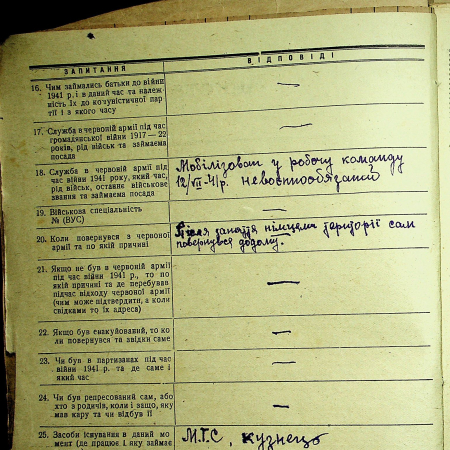 ЗАПИТАННЯ
ВІДПОВІДІ
16. Чим займались батьки до війни
1941 р. і в даний час та належ-
ність їх до комуністичної пар-
тії і з якого часу
—
17. Служба в червоній армії під час
громадянської війни 1917 — 22
років, рід військ та займаєма
посада
—
18. Служба в червоній армії під
час війни 1941 року, який час,
рід військ, останнє військове
звання та займаєма посада
Мобілізован у робочу команду
12/VII-41р. невоєннообязаний
19. Військова спеціальність
№ (ВУС)
—
20. Коли повернувся з червоної
армії та по якій причині
Після заняття німцями територіі сам
повернувся додому.
21. Якщо не був в червоній армії
під час війни 1941 р., то по
якій причині та де перебував
підчас відходу червоної армії
(чим може підтвердити, а коли
свідками то їх адреса)
—
22. Якщо був евакуйований, то ко
ли повернувся та звідки саме
—
23. Чи був в партизанах під час
війни 1941 р. та де саме і
який час
—
24. Чи був репресований сам, або
хто з родичів, коли і защо, яку
мав кару та чи відбув її
—
25. Засоби існування в даний мо
мент (де працює і яку займає
М.Т.С, кузнець